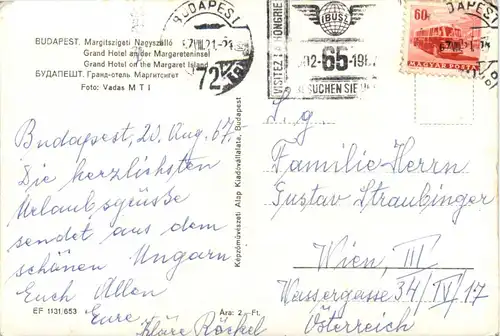 BUDAPEST. Margitszigeti Nagyszálló
Grand Hotel an der Margareteninsel
Grand Hotel on the Margaret Island
БУДАПЕШТ. Гранд-отель Маргитсигет
Foto: Vadas M T I
BUDAPEST
67 VIII. 21.-21
72
VISITEZ LA HONGRIE
IBUSZ
1902-65-1967
BESUCHEN SIE
60f
MAGYAR POSTA
Budapest, 20. Aug. 67.
Die herzlichsten
Urlaubsgrüsse
sendet aus dem
schönen Ungarn
Euch Allen
Eure
Kläre Röckel
Képzőművészeti Alap Kiadóvállalata, Budapest
S. g.
Familie-Herrn
Gustav Straubinger
Wien, III
Wassergasse 34/IV/17
Österreich
EF 1131/653
Ára: 2,- Ft.